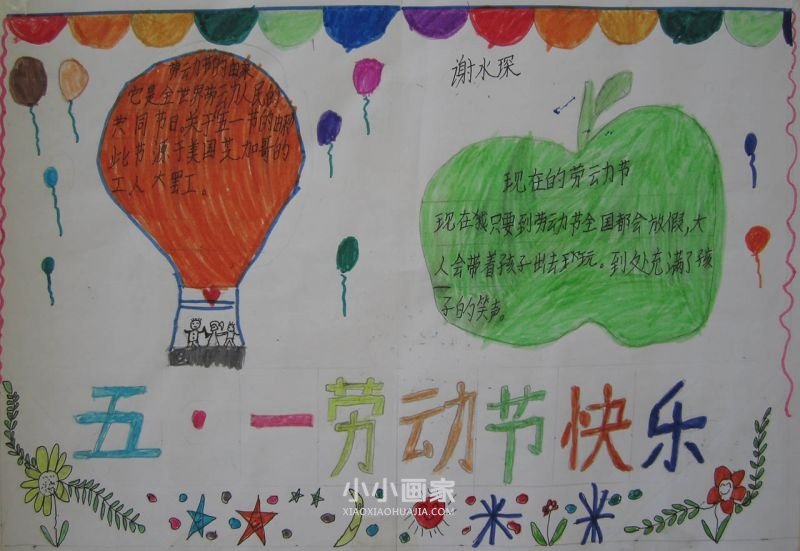 劳动节的由来
它是全世界劳动人民的
共同节日。关于五一节的由来
此节源于美国芝加哥的
工人大罢工。
谢水琛
现在的劳动节
现在只要到劳动节全国都会放假,大
人会带着孩子出去玩。到处充满了孩
子的笑声。
五·一劳动节快乐
小小画家
XIAOXIAOHUAJIA.COM